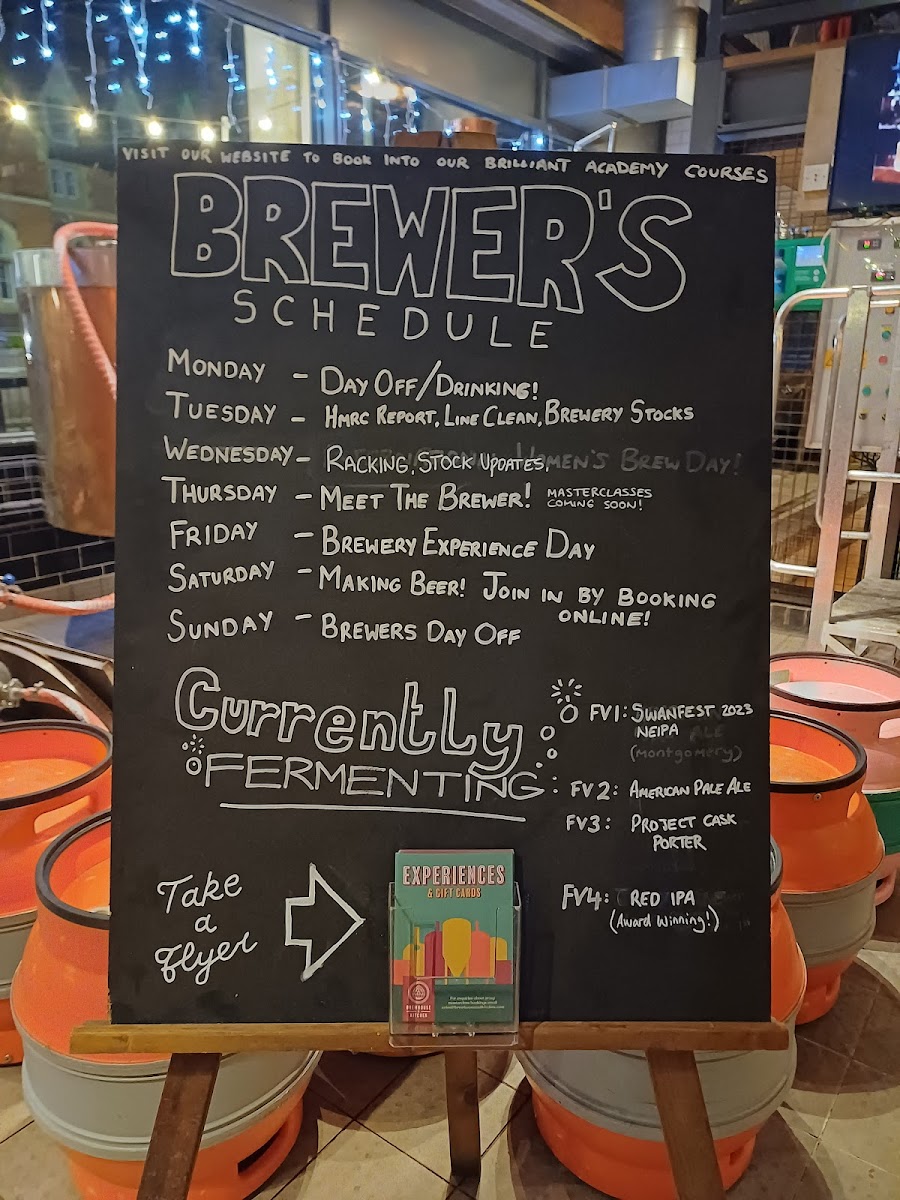 VISIT OUR WEBSITE TO BOOK INTO OUR BRILLIANT ACADEMY COURSES
BREWER'S
SCHEDULE
MONDAY - DAY OFF/DRINKING!
TUESDAY - HMRC REPORT, LINE CLEAN, BREWERY STOCKS
WEDNESDAY - RACKING, STOCK UPDATES, WOMEN'S BREW DAY!
THURSDAY - MEET THE BREWER! MASTERCLASSES
COMING SOON!
FRIDAY - BREWERY EXPERIENCE DAY
SATURDAY - MAKING BEER! JOIN IN BY BOOKING
ONLINE!
SUNDAY - BREWERS DAY OFF
Currently
FERMENTING:
FV1: SWANFEST 2023
NEIPA ALE
(Montgomery)
FV2: AMERICAN PALE ALE
FV3: PROJECT CASK
PORTER
FV4: RED IPA
(Award Winning!)
Take
a
flyer
EXPERIENCES
& GIFT CARDS
KITCHEN